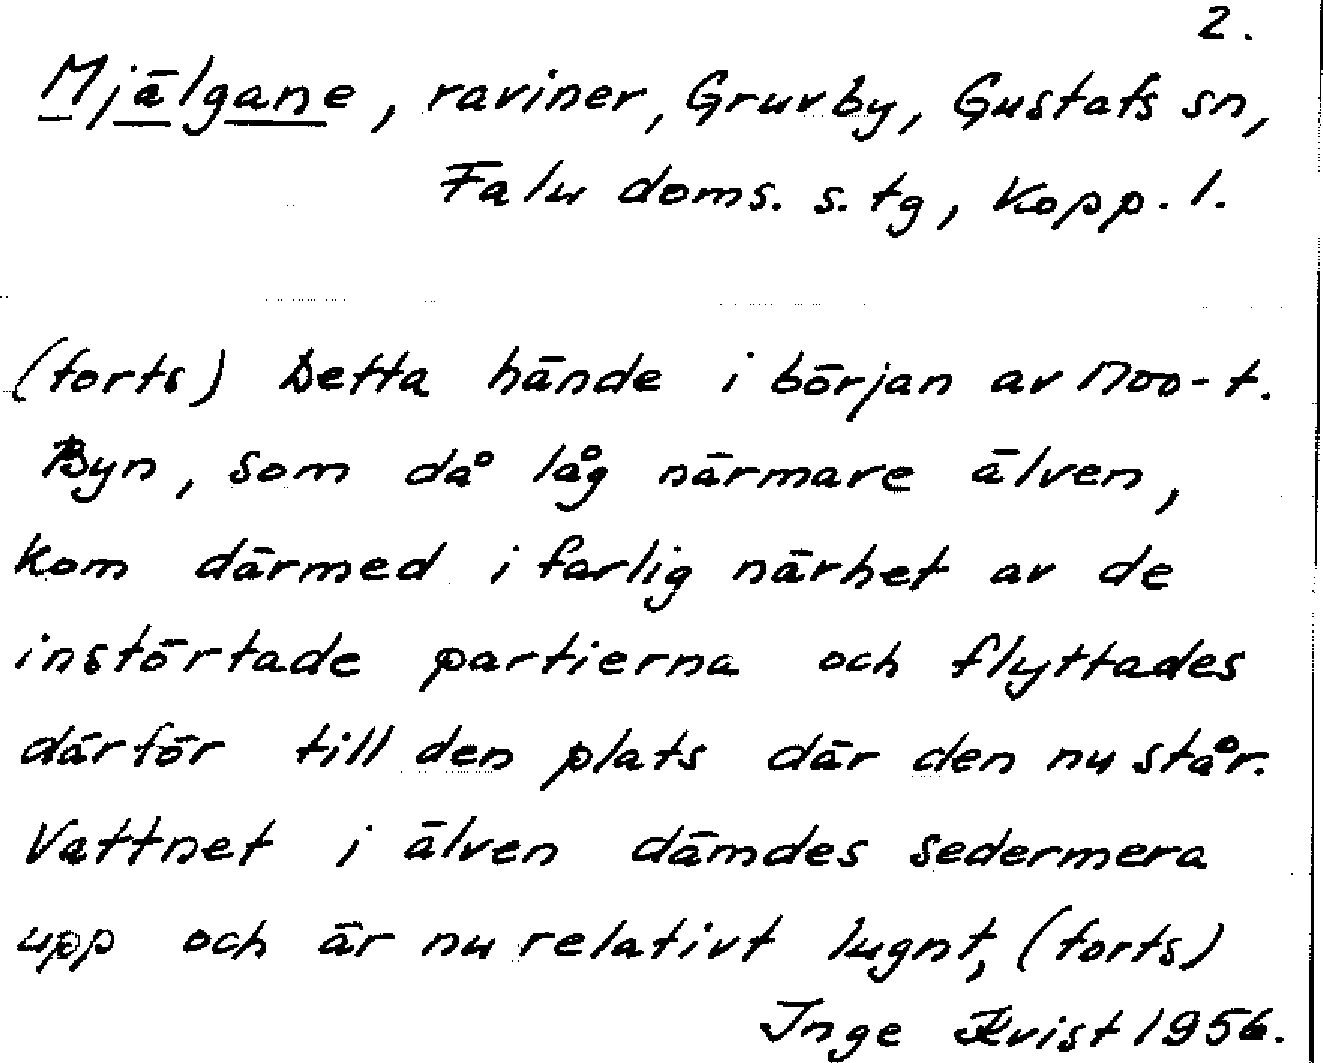 2.
Mjälgane, raviner, Gruvby, Gustafs sn,
Falu doms. s. tg, Kopp. l.
(forts) Detta hände i början av 1700-t.
Byn, som då låg närmare älven,
kom därmed i farlig närhet av de
instörtade partierna och flyttades
därför till den plats där den nu står.
Vattnet i älven dämdes sedermera
upp och är nu relativt lugnt, (forts)
Inge Kvist 1956.